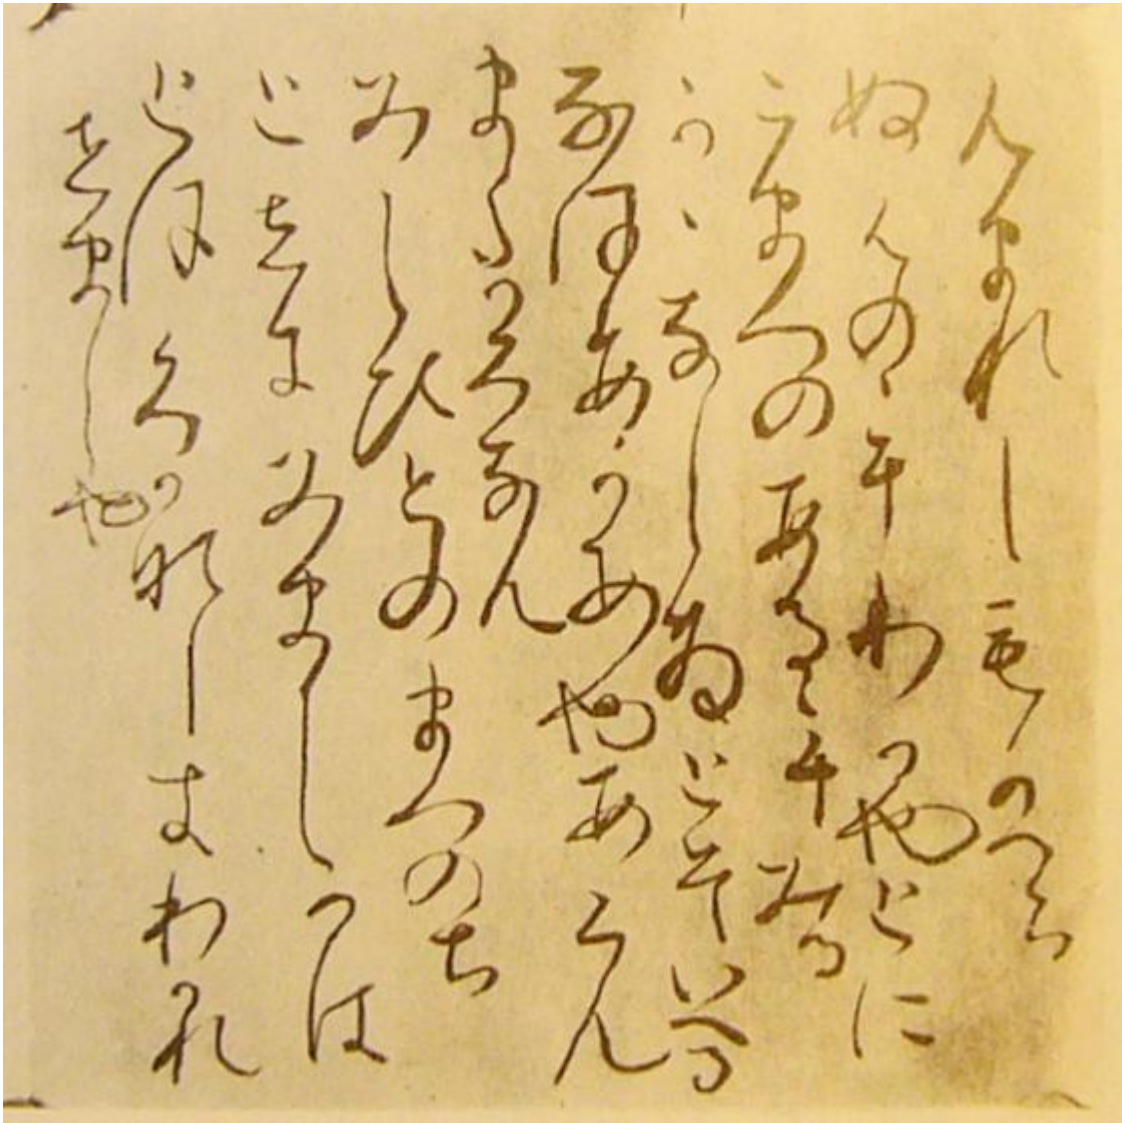 んまれしもかへら
ぬものをわかやとに
こまつのあるをみる
かゝなしさとそいへる
なほあかすやあらん
またかくなん
みしひとのまつのち
とせにみましかは
とほくかなしきわかれ
せましや